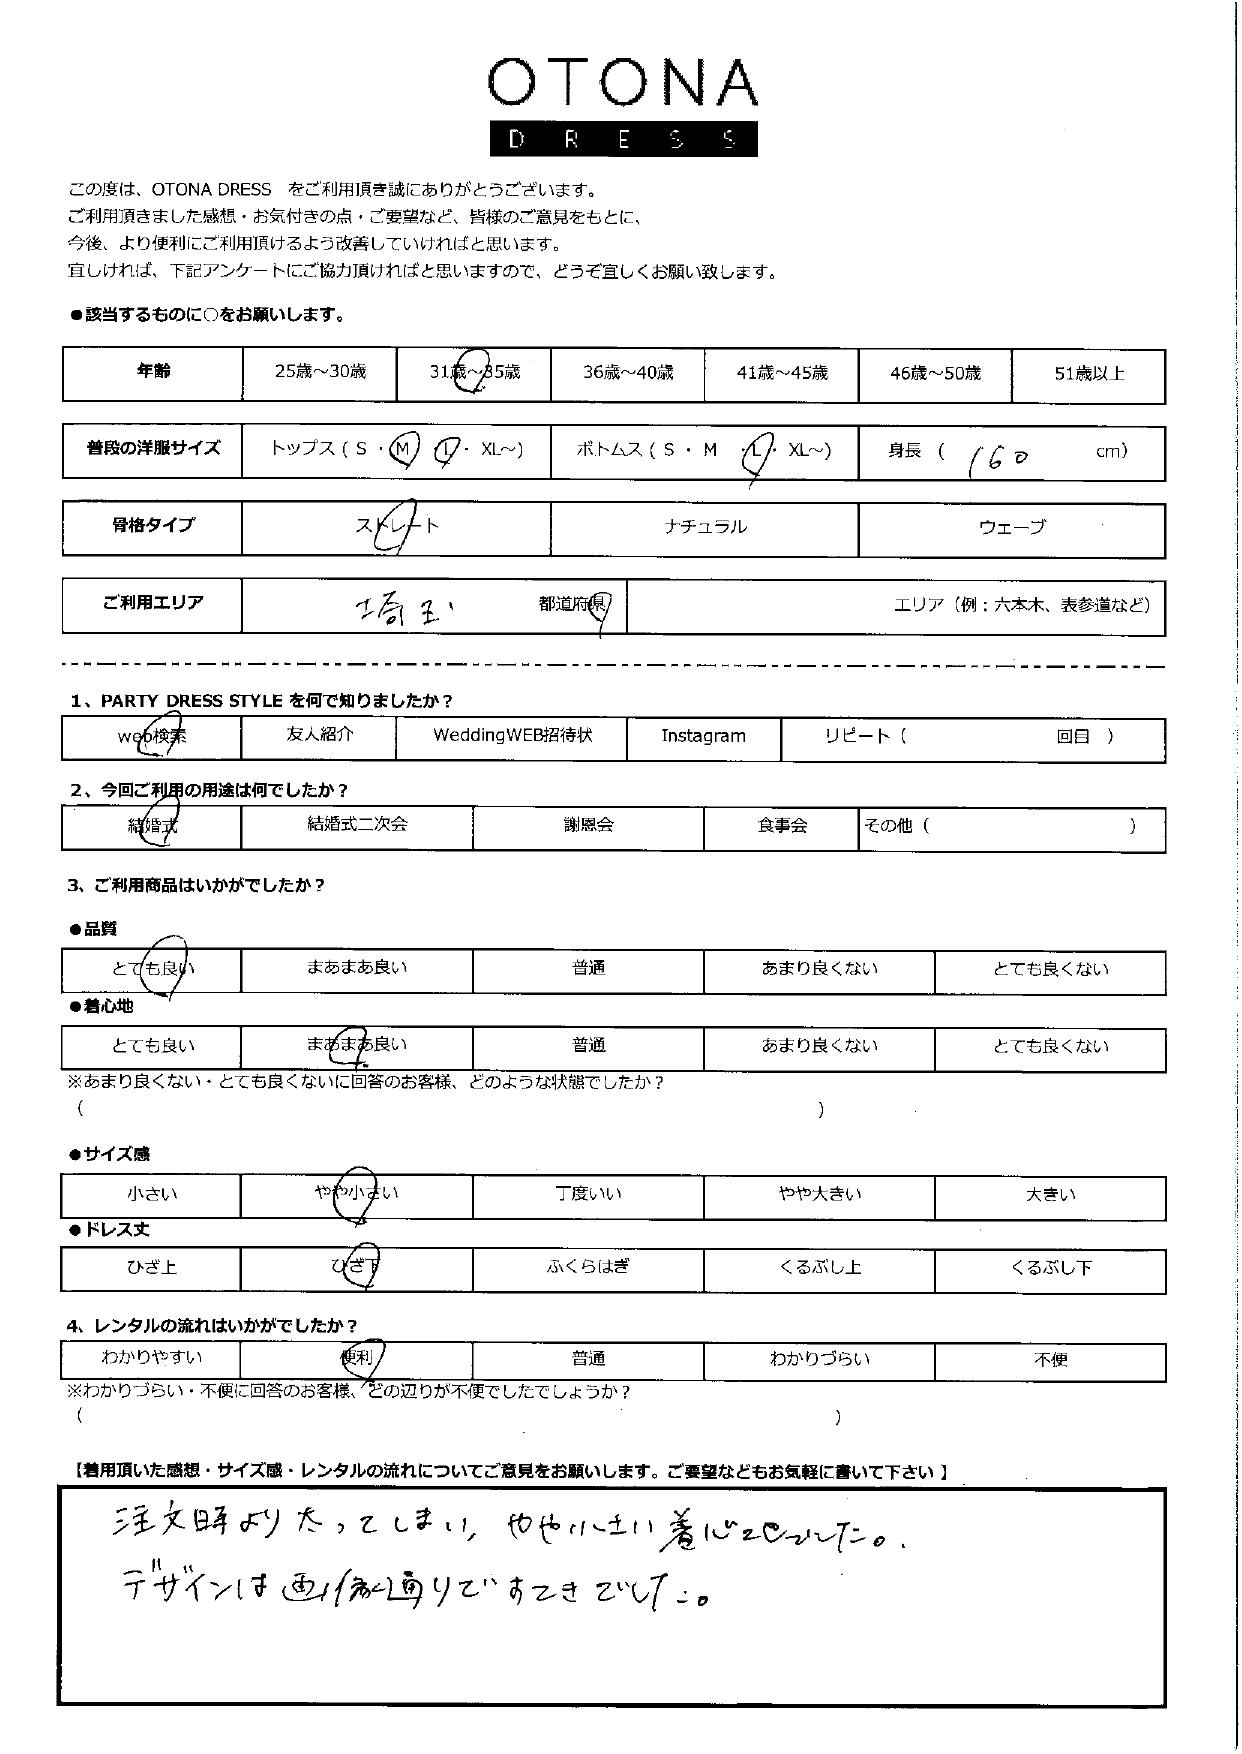 OTONA
DRESS
この度は、OTONA DRESS をご利用頂き誠にありがとうございます。
ご利用頂きました感想・お気付きの点・ご要望など、皆様のご意見をもとに、
今後、より便利にご利用頂けるよう改善していければと思います。
宜しければ、下記アンケートにご協力頂ければと思いますので、どうぞ宜しくお願い致します。
●該当するものに○をお願いします。
年齢 25歳～30歳 31歳～35歳 36歳～40歳 41歳～45歳 46歳～50歳 51歳以上
普段の洋服サイズ トップス ( S ・ M ・ L ・ XL～) ボトムス ( S ・ M ・ L ・ XL～) 身長 ( 160 cm)
骨格タイプ ストレート ナチュラル ウェーブ
ご利用エリア 埼玉 都道府県 エリア（例：六本木、表参道など）
1、PARTY DRESS STYLE を何で知りましたか？
web検索 友人紹介 WeddingWEB招待状 Instagram リピート（ 回目 ）
2、今回ご利用の用途は何でしたか？
結婚式 結婚式二次会 謝恩会 食事会 その他（ ）
3、ご利用商品はいかがでしたか？
●品質
とても良い まあまあ良い 普通 あまり良くない とても良くない
●着心地
とても良い まあまあ良い 普通 あまり良くない とても良くない
※あまり良くない・とても良くないに回答のお客様、どのような状態でしたか？
（ ）
●サイズ感
小さい やや小さい 丁度いい やや大きい 大きい
●ドレス丈
ひざ上 ひざ下 ふくらはぎ くるぶし上 くるぶし下
4、レンタルの流れはいかがでしたか？
わかりやすい 便利 普通 わかりづらい 不便
※わかりづらい・不便に回答のお客様、どの辺りが不便でしたでしょうか？
（ ）
【着用頂いた感想・サイズ感・レンタルの流れについてご意見をお願いします。ご要望などもお気軽に書いて下さい 】
注文時より太ってしまい、やや小さい着心地でした。
デザインは画像通りですてきでした。